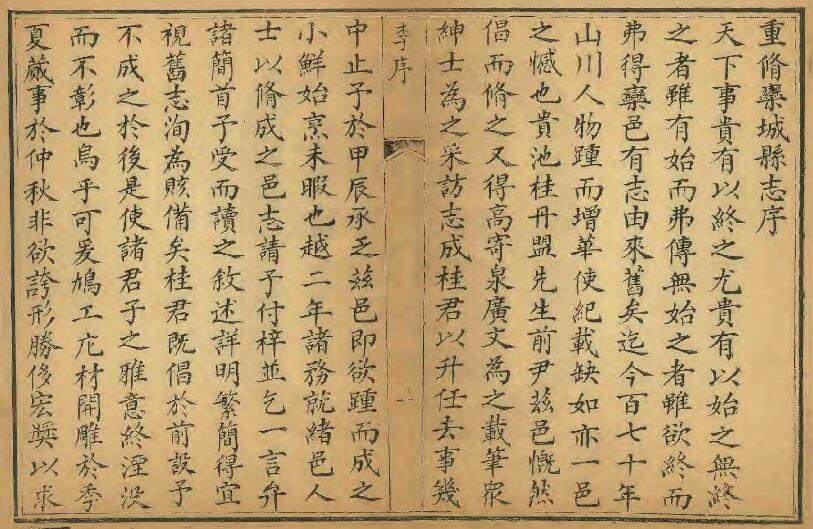 重脩欒城縣志序
天下事貴有以終之尤貴有以始之無終
之者雖有始而弗傳無始之者雖欲終而
弗得欒邑有志由來舊矣迄今百七十年
山川人物踵而增華使紀載缺如亦一邑
之憾也貴池桂丹盟先生前尹茲邑慨然
倡而脩之又得高寄泉廣文為之載筆眾
紳士為之采訪志成桂君以升任去事幾
李序
一
中止予於甲辰承乏茲邑即欲踵而成之
小鮮始烹未暇也越二年諸務就緒邑人
士以脩成之邑志請予付梓並乞一言弁
諸簡首予受而讀之敘述詳明繁簡得宜
視舊志洵為賅備矣桂君既倡於前設予
不成之於後是使諸君子之雅意終湮沒
而不彰也烏乎可爰鳩工庀材開雕於季
夏蕆事於仲秋非欲誇形勝侈宏獎以求